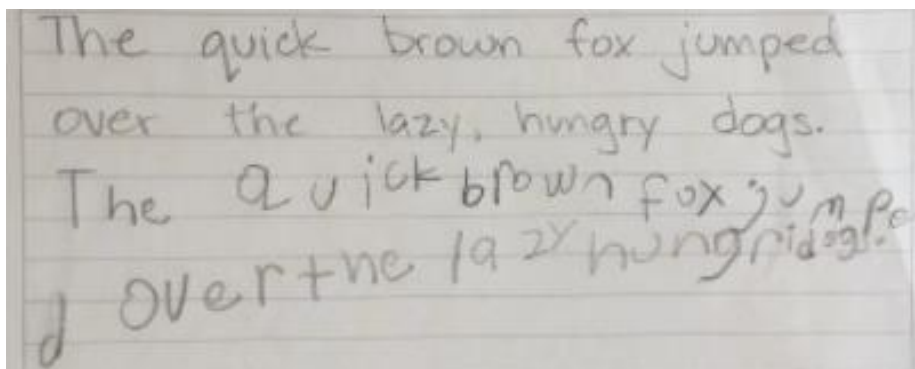 The quick brown fox jumped
over the lazy, hungry dogs.
The quick brown fox jumpe
d over the lazy hungri dogs.